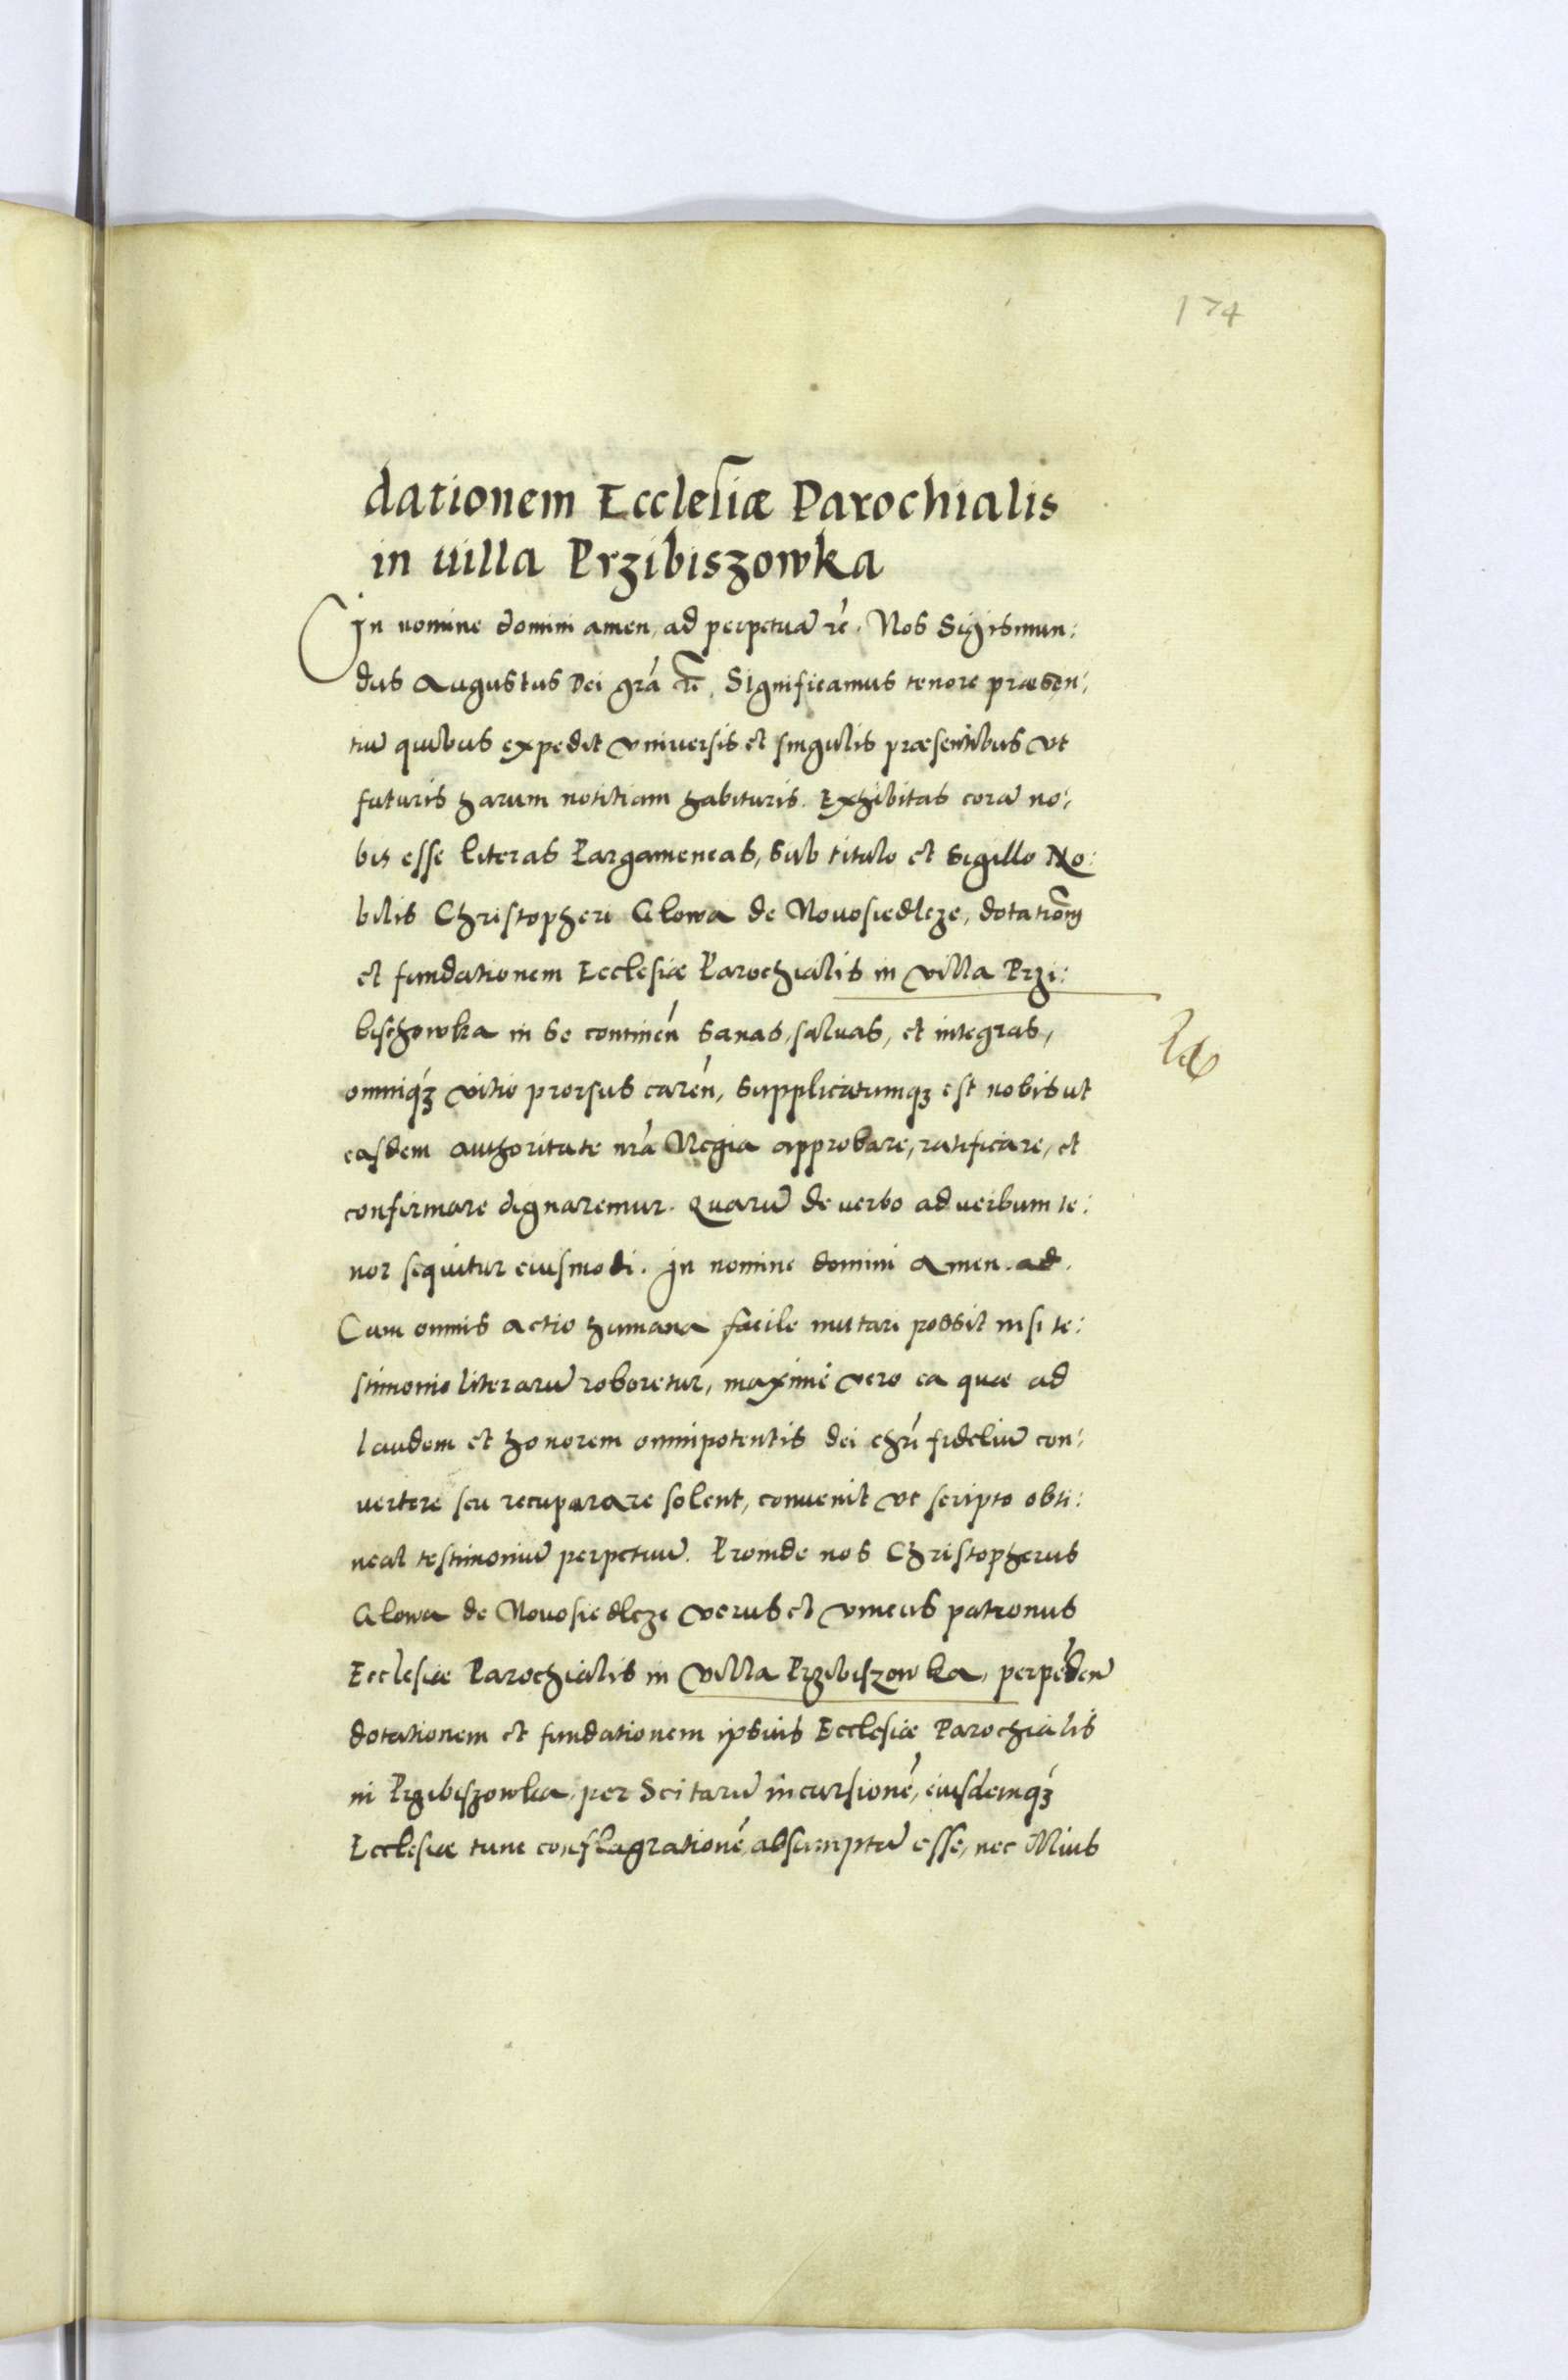 174
dationem Ecclesiæ Parochialis
in villa Przibiszowka
In nomine domini amen, ad perpetuā rē. Nos Sigismun:
dus Augustus Dei grā etc̄. Significamus tenore præsen:
tiū quibus expedit vniuersis et singulis præsentibus vt
futuris harum notitiam habituris. Exhibitas corā no:
bis esse literas Pargameneas, sub titulo et sigillo No:
bilis Christopheri Glowa de Novosiedleze, dotatiōm
et fundationem Ecclesiæ Parochialis in villa Przi:
bischowka in se continēn sanas, saluas, et integras,
omniq́ꝫ vitio prorsus carēn, supplicatumqꝫ est nobis ut
easdem authoritate nrā Regia approbare, ratificare, et
confirmare dignaremur. Quarū de verbo ad verbum te:
nor sequitur eiusmodi. In nomine domini Amen. ad.
Cum omnis actio humana facile mutari possit nisi te:
stimonio literarū roboretur, maxime vero ea quæ ad
laudem et honorem omnipotentis dei chrī fidelium con:
vertere seu recuparare solent, convenit vt scripto obti:
neat testimoniū perpetuū. Proinde nos Christopherus
Glowa de Novosiedleze verus et vnicus patronus
Ecclesiæ Parochialis in villa Przibiszowka, perpēdeñ
dotationem et fundationem ipsius Ecclesiæ Parochialis
in Przibiszowka, per Scitarū incursionē, eiusdemq́ꝫ
Ecclesiæ tunc conflagrationē, absumptā esse, nec